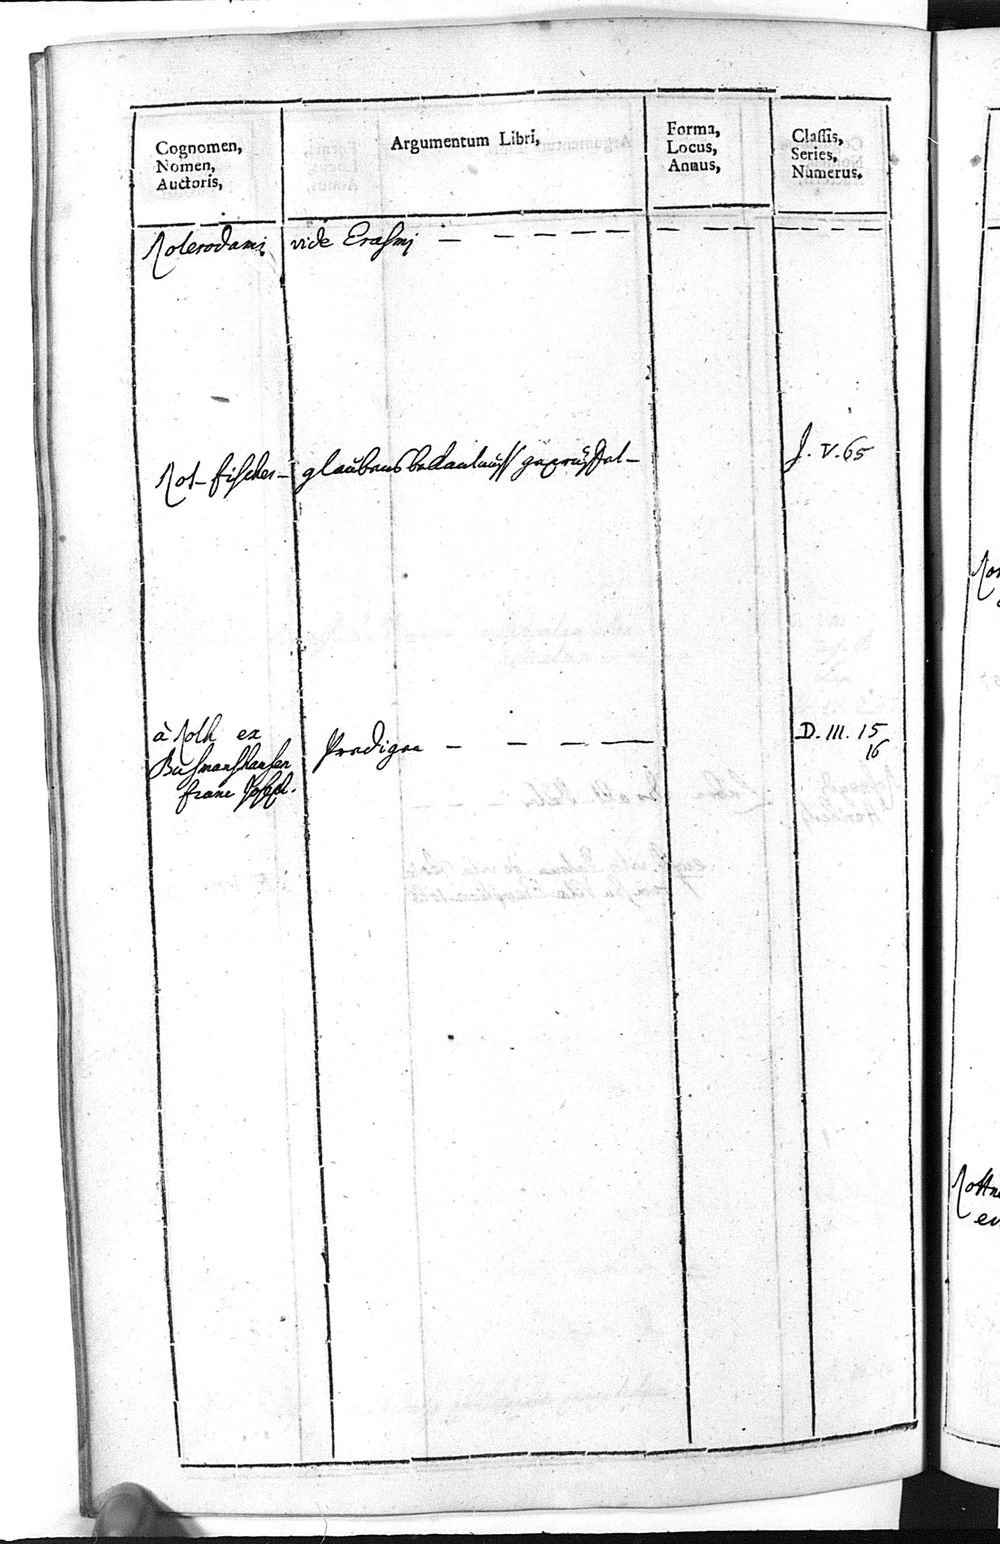 Cognomen,
Nomen,
Auctoris,
Argumentum Libri,
Forma,
Locus,
Annus,
Classis,
Series,
Numerus.
Roterodami vide Erasmi — — — — — — — — — —
Rot-fischer- glaubensbekantnuss - J. V. 65
à Roth ex
Busmanshausen
franc Joseph. Prodigae — — — — D. III. 15
16